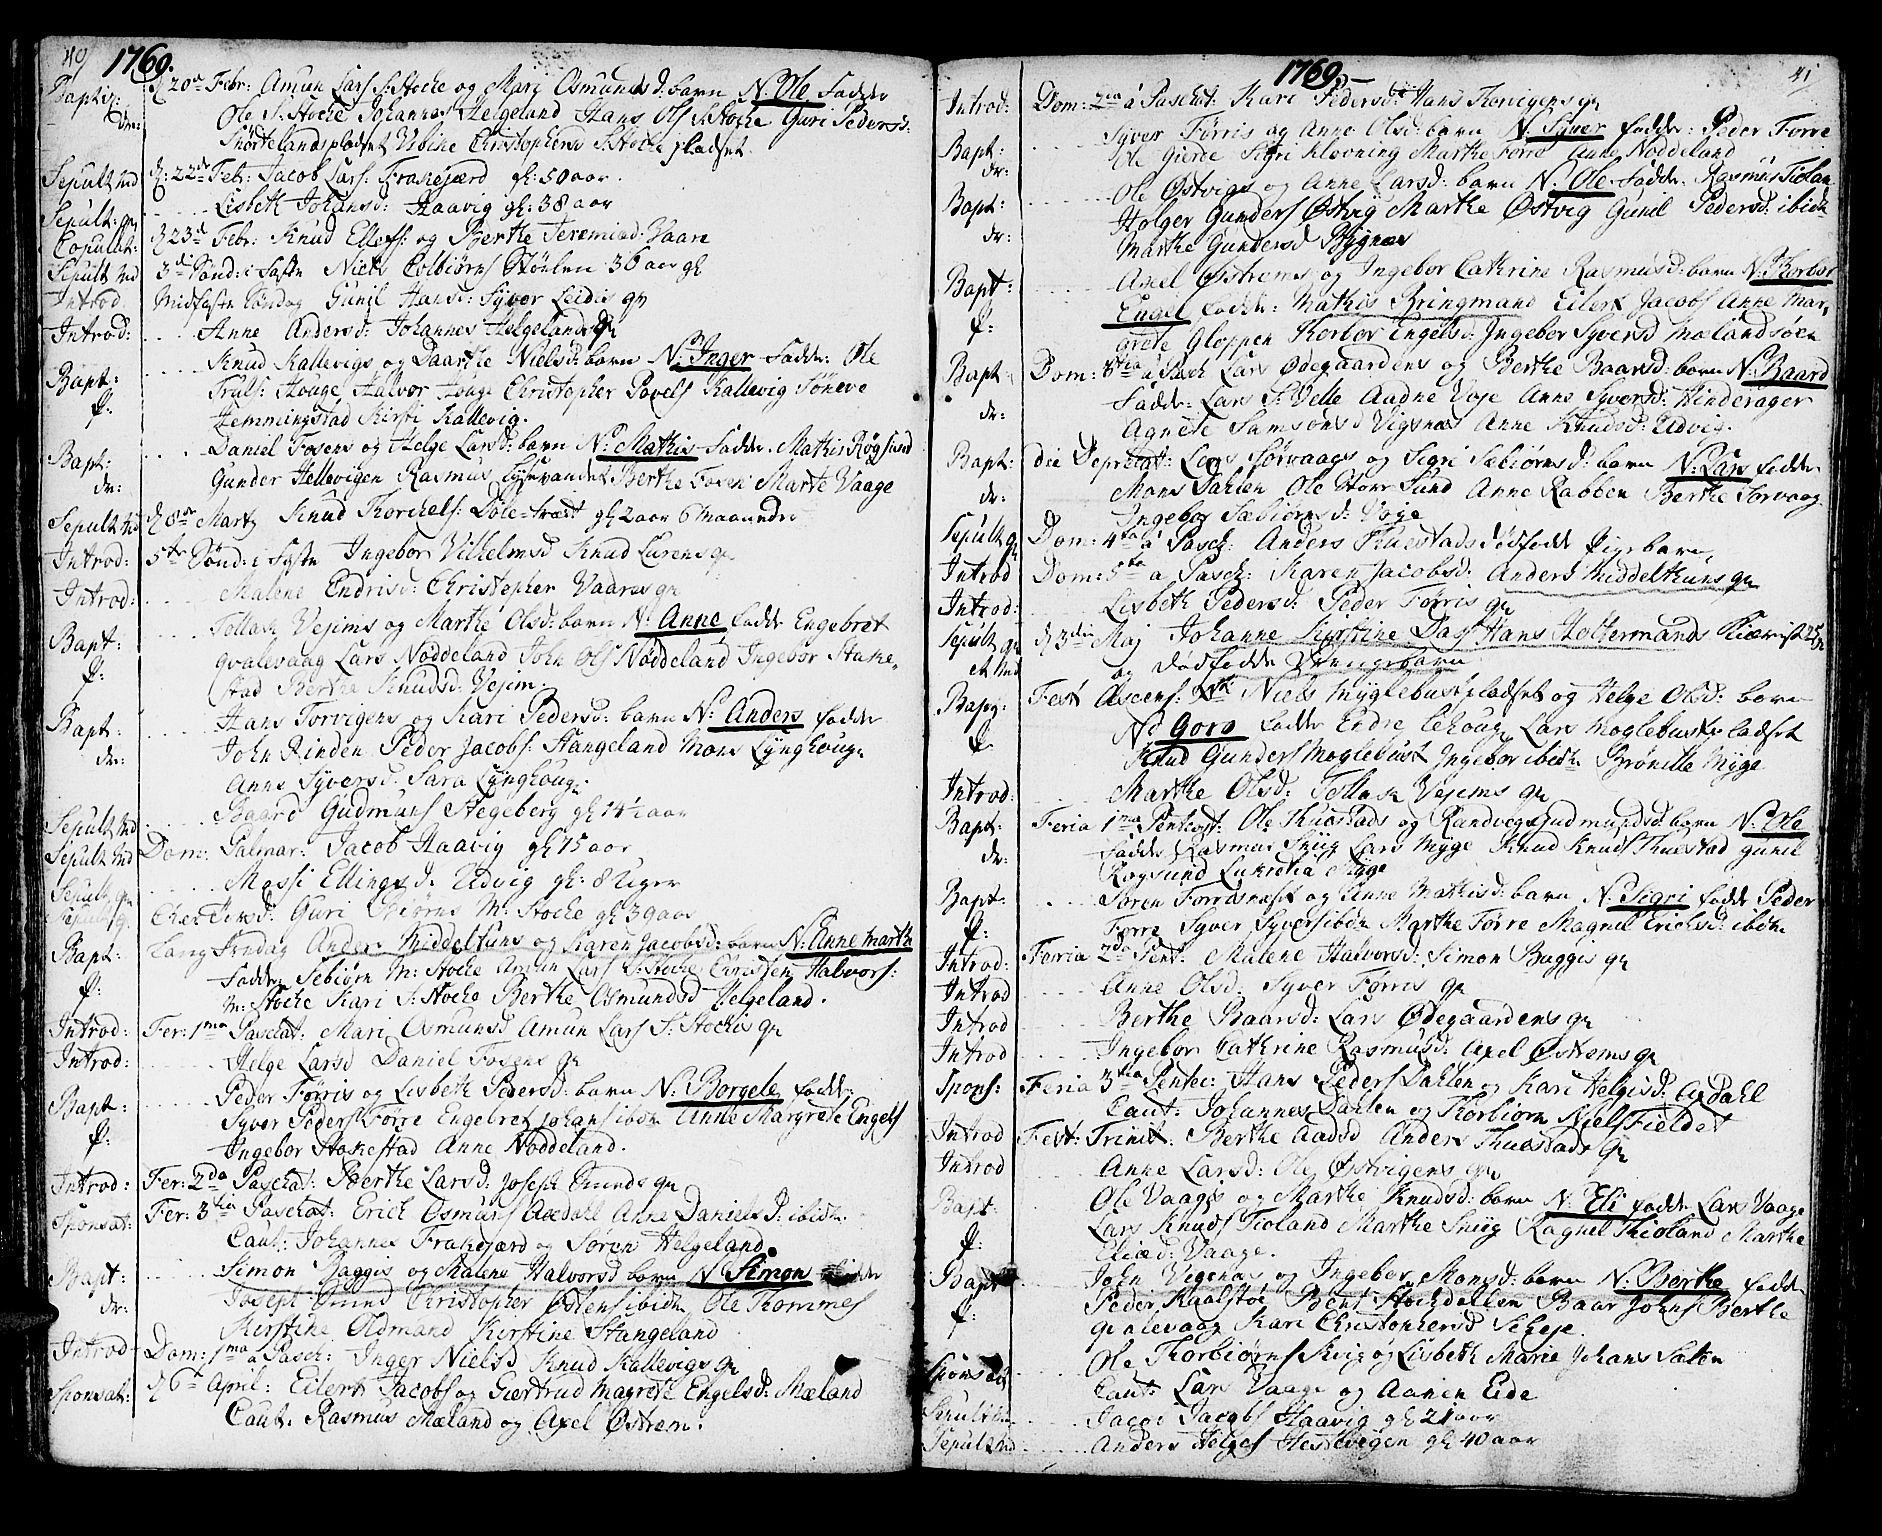 40 1769.
Baptiz: d 20de Febr: Amun Lars: S: Stocke og Mari Osmunds d. barn N: Ole Fadder
dr: Ole S: Stocke Johannes Helgeland Hans Ols S: Stocke Guri Pedersd:
Snørtelandspladset Christophers S: Stocke pladset.
Sepult Md d: 22de Feb: Jacob Lars: Frakkejærd gl: 50 aar.
Sepult: qv Lisbeth Johansd: Haavig gl: 38 aar
Copulat: d 23d Febr: Knud Ellefs: og Berthe Jeremiæd: Vaare
Sepult Md 3di Sønd: i Faste Niels Colbiørns Stølen 36 aar gl
Introd Midfaste Søndag Gunil Hansd: Syver Leidis qv
Introd: Anne Andersd: Johannes Helgelands qv
Knud Kallevigs og Baarthe Nielsd: barn N: Inger Fadder: Ole
Bapt: Truls: Hauge Halvor Hauge Christopher Povels Kallevig Søneve
p: Hemmingstad Kirsti Kallevig.
Daniel Fosens og Helge Larsd: barn N: Mathis Fadder Mathis Røgsund
Bapt: dr: Gunder Hellevigen Rasmus Berthe Fosen Marte Vaage
Sepult Md d 8de Marty Knud Thorchels: Dole-Træet gl 2 aar 6 maaneder
Introd: 5te Sønd: i Faste Ingebor Vilhelmsd Knud Lurens qv
Introd: Malene Endrisd: Christopher Vaares qv
Tollach Vejims og Marthe Olsd: barn N: Anne Fadder Engebret
Bapt: qvalevaag Lars Nøddeland John Ols Nøddeland Ingebor Stake,
p: stad Berthe Knudsd: Vejim.
Bapt: Hans Torvigens og Kari Pedersd: barn N: Anders Fadder
dr: John Rinden Peder Jacobs: Stangeland Mons Lynghoug
Anne Syversd. Sara Lynghoug.
Sepult Md Baard Gudmuns Stegeberg gl 14 1/2 aar
Sepult Md Dom: Palmar: Jacob Haavig gl 75 aar
Sepult. qv Massi Ellingsd: Udvig gl: 8 Uger
Sepult q. Guri Biørns M: Stocke gl 39 aar
Bapt: Lang Fredag Anders Middeltuns og Karen Jacobsd: barn N: Anne Marthe
p: Fadder Sebiørn M: Stocke Amun Lars S: Stocke Christen Halvors:
M: Stocke Kari S: Stocke Berthe Osmundsd Helgeland.
Introd: Fer: 1ma Paschat: Mari Osmunsd Amun Lars S: Stockis qv
Introd: Helge Larsd Daniel Fosens qv
Peder Førris og Lisbeth Pedersd: barn N: Borgele Fadder
Bapt: Syver Peders Førre Engebret Johans ibidm Anne Margrete Engels
p: Ingebor Stakestad Anne Nøddeland.
Introd: Fer: 2da Paschat: Berthe Larsd: Joseph qv
Sponsat: Fer: 3tia Paschat: Erich Osmuns Aadahl Anne Daniels D: ibidm.
Caut: Johannes Frakkejærd og Søren Helgeland.
Bapt: Simon Baggis og Malene Halvorsd barn N: Simon Fadder
dr: Joseph Christopher Østens ibidm Ole Thommes
Kirstine Oldmand Kirstine Stangeland
Introd Dom: 1ma a Pasch: Inger Nielsd Knud Kallevigs qv
Sponsat: d 6te April: Eilert Jacobs og Giertrud Magrete Engelsd: Mæland
Caut: Rasmus Mæland og Axel Østrem.
1769. 41
Introd: Dom: 2da á Paschat: Kari Pedersd: Hans Torvigens qv
Syver Førris og Anne Olsd: barn N: Syver Fadder: Peder Førre
Bapt: dr: Ole Gierde Sigri Klevning Marthe Førre Anne Nøddeland
Bapt: Ole Østvigs og Anne Larsd: barn N: Ole Fadder. Rasmus Tiolan
dr: Holger Gunders Østvig Marthe Østvig Gunil Pedersd: ibidm
Marthe Gundersd Bygnæs
Bapt: Axel Østrems og Ingebor Cathrine Rasmusd: barn N: Korbor
p: Engel Fadder: Mathis Bringmand Eilert Jacobs Anne Mar,
grete Gloppen Korbor Engelsd: Ingebor Syversd Molandsøen
Bapt: Dom: 3tia a Pasch Lars Ødegaardens og Berthe Baarsd: barn N: Baard
dr: Fadder: Lars S: Velle Aadne Voje Anne Syversd: Hinderager
Agnete Samsons d Vigsnæs Anne Knudsd: Udvig.
Bapt: die Deprecat: Lars Sørvaags og Sigri Sebiørnsd: barn N: Lars Fadder
dr: Mons Dahlen Ole Store Sund Anne Rabben Berthe Sørvaag
Ingebor Sebiørnsd: Voje
Sepult qv Dom: 4ta á Pasch: Anders Thuestads dødfødde Pigebarn
Introd Dom: 5ta a Pasch: Karen Jacobsd: Anders Middelthuns qv
Introd: Lisbeth Pedersd: Peder Førris qv
Sepult qv d 3die Maj Johanne Kirstine Dass Hans Holtermands Kiæriste
et Md og dødfødde Drengebarn
Bapt: Fest Ascens: Niels Myglebustpladset og Helge Olsd: barn
p. Nd Goro Fadder Endre Lars Moglebustpladset
Knud Gunders Moglebust Ingebor ibidm Brønille Myge
Introd: Marthe Olsd: Tollach Vejims qv
Bapt: Feria 1ma Pentcost: Ole Thuestads og Randveg Gudmundsd: barn N: Ole
dr: Fadder Rasmus Sniig Lars Myge Knud Knuds Thuestad Gunil
Røgsund Lukretia Myge
Bapt: Søren Førrisnæset og Anne Mathisd: barn N: Sigri Fadder Peder
p: Førre Syver Syvers ibidm Marthe Førre Magnil Erichsd: ibidm
Introd: Feria 2da Pent: Malene Halvorsd: Simon Baggis qv
Introd Anne Olsd: Syver Førris qv
Introd Berthe Baarsd: Lars Ødegaardens qv
Introd Ingebor Cathrine Rasmusd: Axel Østrems qv
Spons: Feria 3tia Pentec: Hans Peders Dahlen og Kari Helgisd: Aadahl
Caut: Johannes Dahlen og Thorbiørn Niels Fieldet
Introd Fest: Trinit: Berthe Aadsd Anders Thuestads qv
Introd Anne Larsd: Ole Østvigens qv
Bapt: Ole Vaagis og Marthe Knudsd: barn N: Eli Fadder Lars Vaage
p: Lars Knuds Tioland Marthe Sniig Ragnil Thioland Marthe
Eliæd: Vaage.
Bapt John Vigenæs og Ingebor Monsd: barn N: Berthe Fadder
p: Peder Kaalstøe Bent Stochdellen Baar Johns Berthe
Qvalevaag Kari Christophersd Scheje.
Sponsat Ole Thorbiørns Kvig og Lisbeth Marie Johans Salen
Caut: Lars Vaage og Aanen Eide
Sepult Jacob Jacobs Haavig gl 21 aar
Sepult Md Anders Helges Hestevigen gl 40 aar